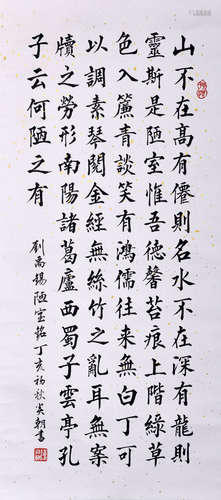 山不在高有僊則名水不在深有龍則
靈斯是陋室惟吾德馨苔痕上階綠草
色入簾青談笑有鴻儒往來無白丁可
以調素琴閱金經無絲竹之亂耳無案
牘之勞形南陽諸葛廬西蜀子雲亭孔
子云何陋之有
劉禹錫陋室銘丁亥初秋朝書